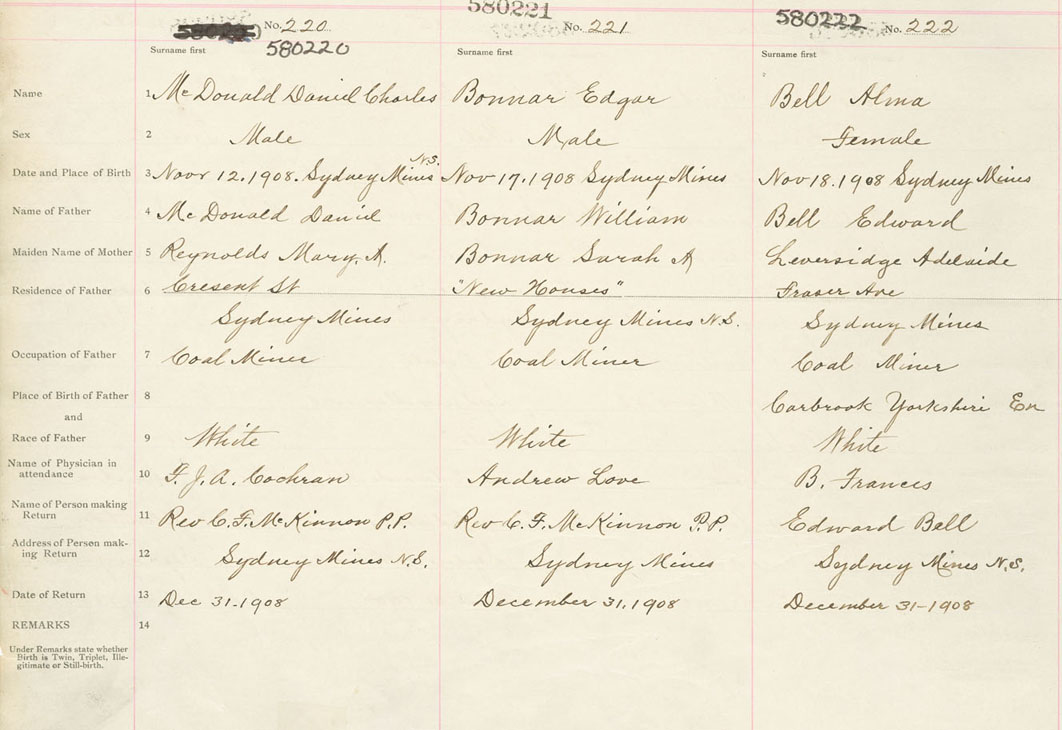 No. 220 580221 No. 221 580222 No. 222
580220
Surname first Surname first Surname first
Name 1 McDonald Daniel Charles Bonnar Edgar Bell Alma
Sex 2 Male Male Female
N.S.
Date and Place of Birth 3 Novr 12.1908. Sydney Mines Nov 17.1908 Sydney Mines Nov 18.1908 Sydney Mines
Name of Father 4 McDonald Daniel Bonnar William Bell Edward
Maiden Name of Mother 5 Reynolds Mary. A. Bonnar Sarah A Leversidge Adelaide
Residence of Father 6 Cresent St "New Houses" Fraser Ave
Sydney Mines Sydney Mines N.S. Sydney Mines
Occupation of Father 7 Coal Miner Coal Miner Coal Miner
Place of Birth of Father 8 Carbrook Yorkshire En
and
Race of Father 9 White White White
Name of Physician in
attendance 10 F. J. A. Cochran Andrew Love B. Francis
Name of Person making
Return 11 Rev C. F. McKinnon P.P. Rev C. F. McKinnon P.P. Edward Bell
Address of Person mak-
ing Return 12 Sydney Mines N.S. Sydney Mines Sydney Mines N.S.
Date of Return 13 Dec 31-1908 December 31.1908 December 31-1908
REMARKS 14
Under Remarks state whether
Birth is Twin, Triplet, Ille-
gitimate or Still-birth.